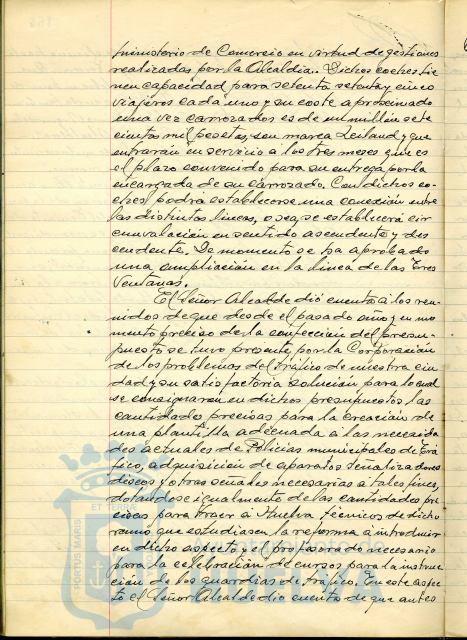 Ministerio de Comercio en virtud de gestiones
realizadas por la Alcaldía. Dichos coches tie
nen capacidad para setenta setenta y cinco
viajeros cada uno y su coste aproximado
una vez carrozados es de un millón sete
cientos mil pesetas, son marca Leiland y que
entrarán en servicio a los tres meses que es
el plazo convenido para su entrega por la
encargada de su carrozado. Con dichos co-
ches podrá establecerse una conexión entre
las distintas lineas, o sea, se establecerá cir
cunvalación en sentido ascendente y des
cendente. De momento se ha aprobado
una ampliación en la linea de las Tres
Ventanas.
El Señor Alcalde dió cuenta a los reu-
nidos de que desde el pasado año y en mo
mento preciso de la confección del presu-
puesto se tuvo presente por la Corporación
de los problemas del tráfico de nuestra ciu
dad y su satisfactoria solución para lo cual
se consignaron en dichos presupuestos las
cantidades precisas para la creación de
una plantilla adecuada a las necesida
des actuales de Policias municipales de Trá
fico, adquisición de aparatos señalizadores
discos y otras señales necesarias a tales fines,
dotandose igualmente de las cantidades pre
cisas para traer a Huelva técnicos de dicho
ramo que estudiasen la reforma a introducir
en dicho aspecto y el profesorado necesario
para la celebración de cursos para la instruc
ción de los guardias de tráfico. En este aspec
to el Señor Alcalde dio cuenta de que antes
PORTUS MARIS
ET TERRAE
Ayuntamiento de